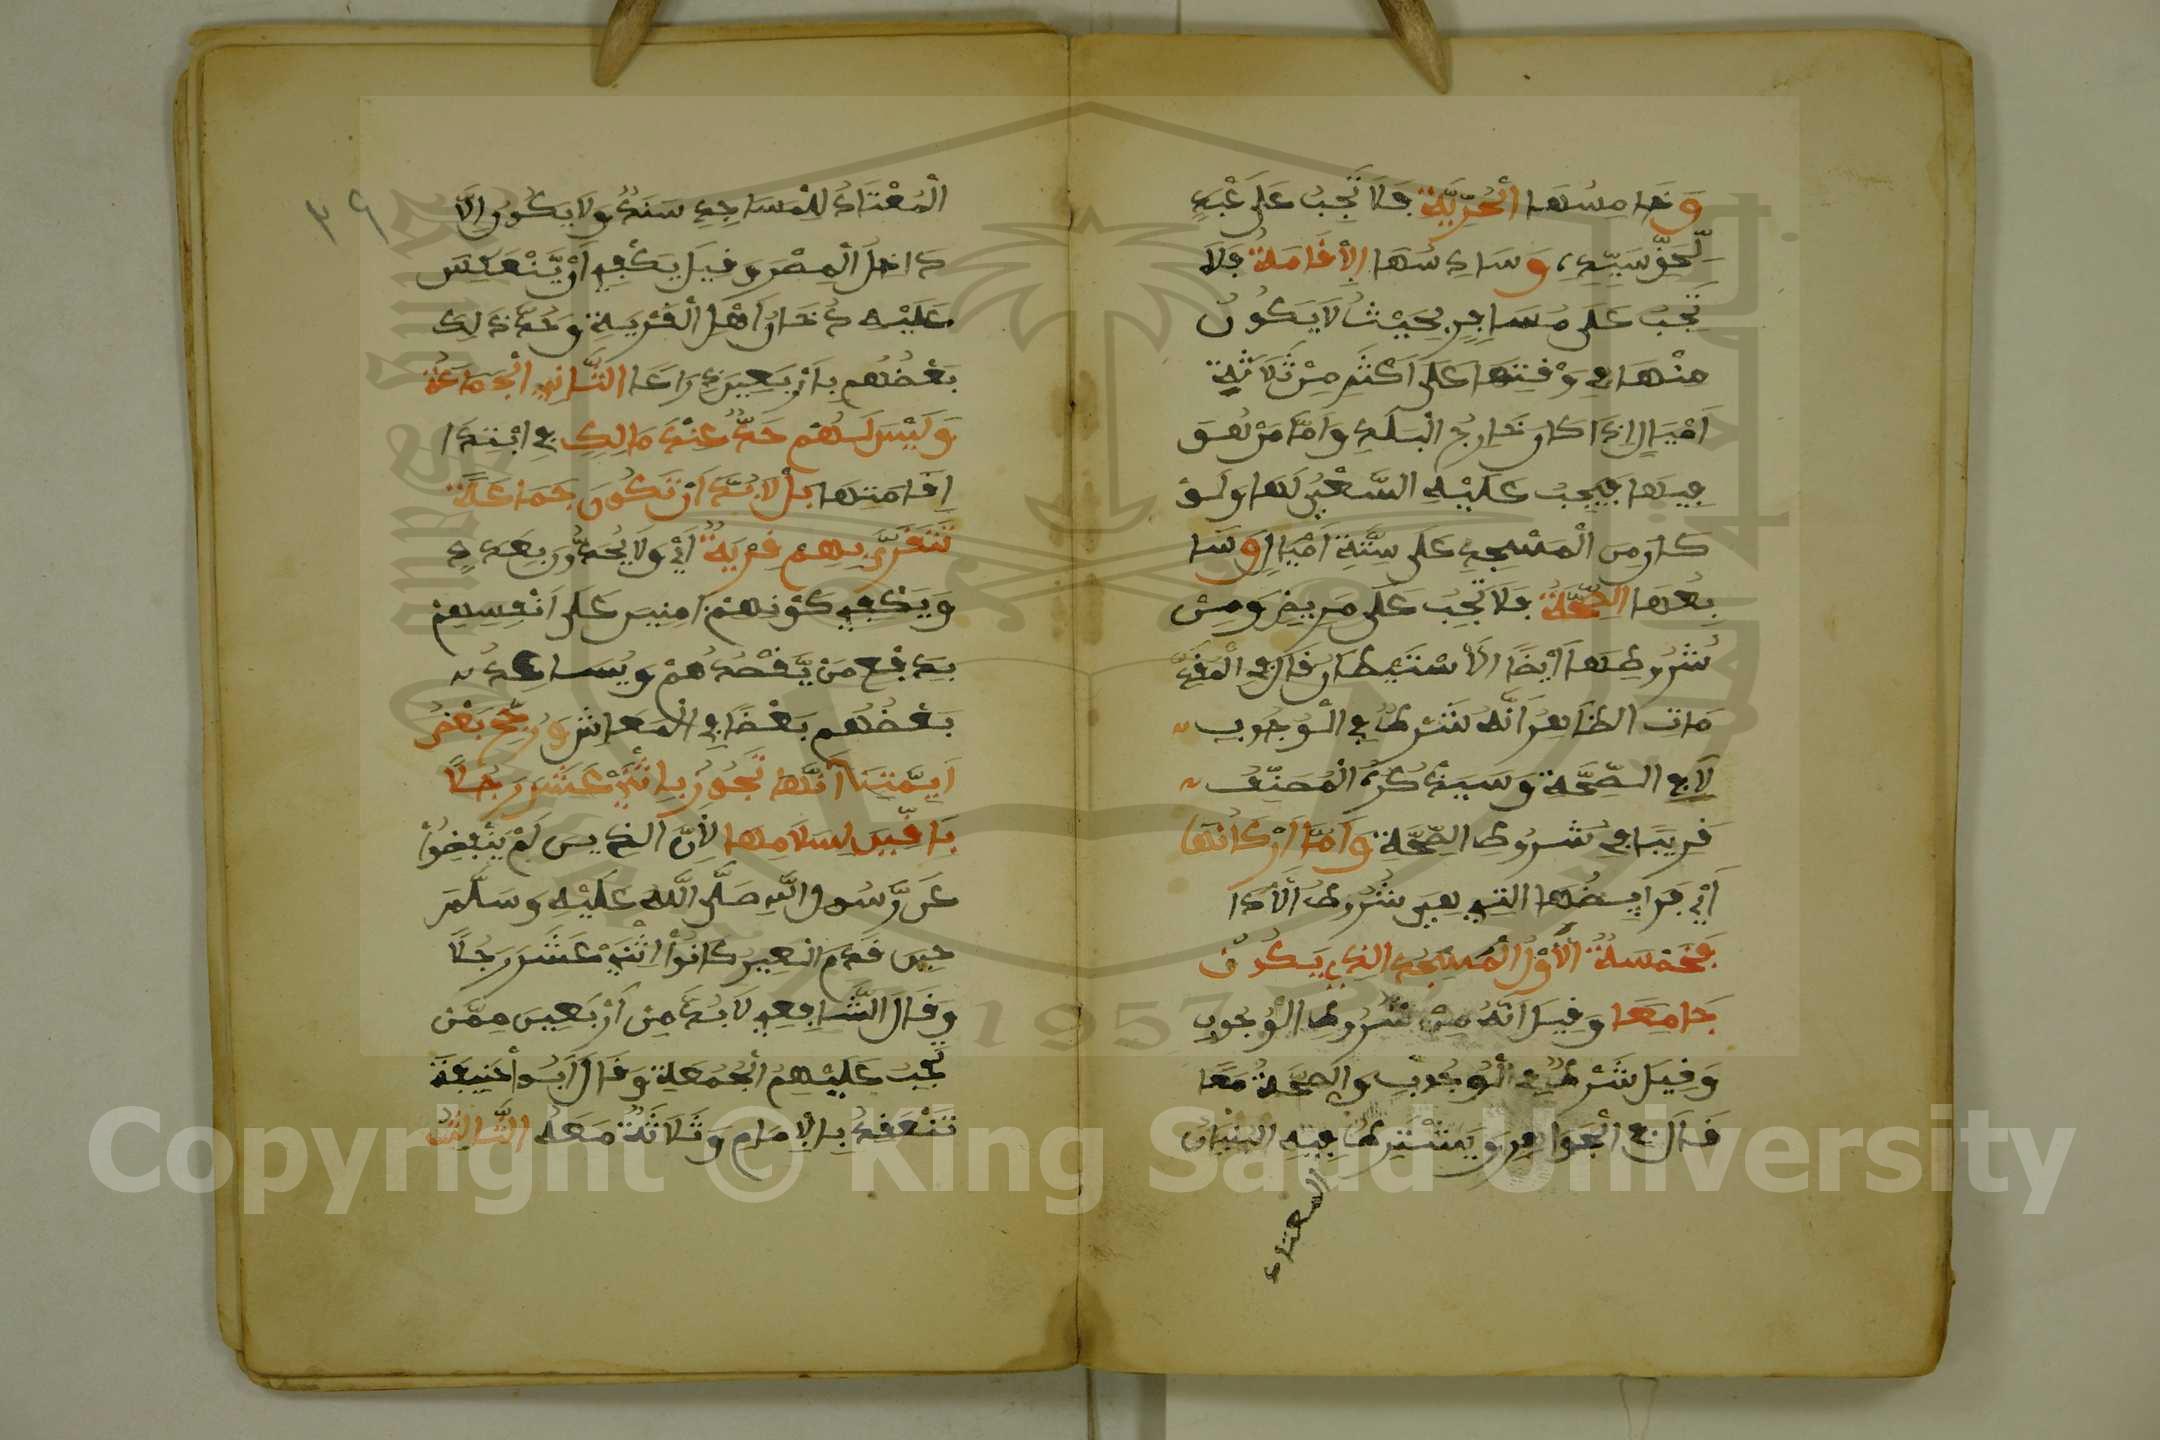 وَخَامِسُهَا الْحُرِّيَّةُ فَلَا تَجِبُ عَلَى عَبْدٍ
لِّحَقِّ سَيِّدِهِ، وَسَادِسُهَا الْإِقَامَةُ فَلَا
تَجِبُ عَلَى مُسَافِرٍ بِحَيْثُ لَا يَكُونُ
مِنْهَا فِي وَقْتِهَا عَلَى أَكْثَرِ مِنْ ثَلَاثَةِ
أَمْيَالٍ إِذَا كَانَ خَارِجُ الْبَلَدِ وَأَمَّا مَنْ هُوَ
فِيهَا فَيَجِبُ عَلَيْهِ السَّعْيُ لَهَا وَلَوْ
كَانَ مِنَ الْمَسْجِدِ عَلَى سِتَّةِ أَمْيَالٍ وَسَا
بِعُهَا الصِّحَّةُ فَلَا تَجِبُ عَلَى مَرِيضٍ وَمِنْ
شُرُوطِهَا أَيْضًا الْاسْتِيطَانُ قَالَ فِي الْمُقَدِّ
مَاتِ الظَّاهِرُ أَنَّهُ شَرْطٌ فِي الْوُجُوبِ
لَا فِي الصِّحَّةِ وَسَيَذْكُرُهُ الْمُصَنِّفُ
قَرِيبًا فِي شُرُوطِ الصِّحَّةِ وَأَمَّا أَرْكَانُهَا
أَيْ فَرَايِضُهَا الَّتِي هِيَ شُرُوطُ الْأَدَا
فَخَمْسَةٌ الْأَوَّلُ الْمَسْجِدُ الَّذِي يَكُونُ
جَامِعًا وَقِيلَ أَنَّهُ مِنْ شُرُوطِ الْوُجُوبِ
وَقِيلَ شَرْطٌ فِي الْوُجُوبِ وَالصِّحَّةِ مَعًا
قَالَ فِي الْجَوَاهِرِ وَيَشْتَرِطُ فِيهِ الْبُنْيَانُ
المعتاد
٣٩
الْمُعْتَادُ لِلْمَسَاجِدِ سَنَدٌ وَلَا يَكُونُ إِلَّا
دَاخِلَ الْمِصْرِ وَقِيلَ يَكْفِي أَنْ يَّنْعَكِسَ
عَلَيْهِ دُخَانُ أَهْلِ الْقَرْيَةِ وَحَدَّ ذَلِكَ
بَعْضُهُم بِأَرْبَعِينَ ذِرَاعًا الثَّانِي الْجَمَاعَةُ
وَلَيْسَ لَهُمْ حَدٌّ عِنْدَ مَالِكٍ فِي ابْتِدَا
إِقَامَتِهَا بَلْ لَا بُدَّ أَنْ تَكُونَ جَمَاعَةً
تَتَقَرَّى بِهِمْ قَرْيَةٌ أَيْ وَلَا يُحَدُّونَ بِعَدَدٍ
وَيَكْفِي كَوْنُهُمْ آمِنِينَ عَلَى أَنْفُسِهِمْ
بِدَفْعِ مَن يَّقْصُدُهُمْ وَيُسَاعِدُ
بَعْضُهُم بَعْضًا فِي الْمَعَاشِ وَرَجَّحَ بَعْضُ
أَيِمَّتِنَا أَنَّهَا تَجُوزُ بِاثْنَيْ عَشَرَ رَجُلًا
بَاقِينَ لِسَلَامِهَا لِأَنَّ الَّذِينَ لَمْ يَنْفَضُّوا
عَن رَّسُولِ اللَّهِ صَلَّى اللَّهُ عَلَيْهِ وَسَلَّمَ
حِينَ قَدِمَ الْعِيرُ كَانُوا اثْنَيْ عَشَرَ رَجُلًا
وَقَالَ الشَّافِعِي لَا بُدَّ مِنْ أَرْبَعِينَ مِمَّنْ
تَجِبُ عَلَيْهِمُ الْجُمُعَةِ وَقَالَ أَبُوا حَنِيفَةَ
تَنْعَقِدُ بِالْإِمَامِ وَثَلَاثَةٌ مَعَهُ الثَّالِثُ
1957
Copyright © King Saud University